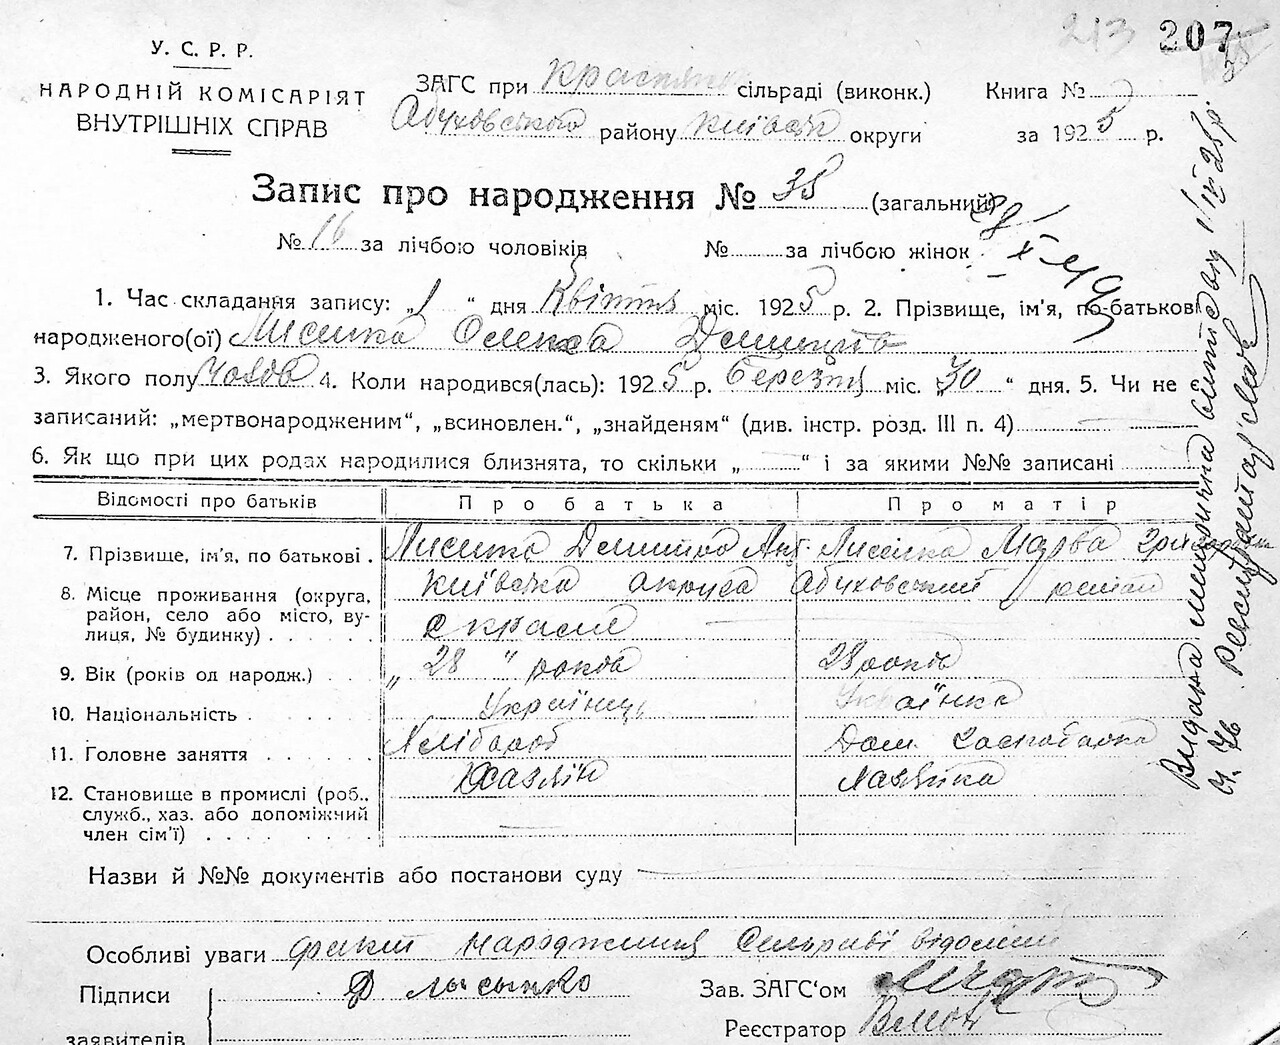 213 207
У. С. Р. Р.
НАРОДНІЙ КОМІСАРІЯТ
ВНУТРІШНІХ СПРАВ
ЗАГС при сільраді (виконк.)
Обуховського району Київськ округи
Книга №
за 1925 р.
Запис про народження № 35 (загальний)
№ 16 за лічбою чоловіків № за лічбою жінок
1. Час складання запису: „1 “ дня Квітня міс. 1925 р. 2. Прізвище, ім'я, по-батькові
народженого(ої) Лисенка Олекса
3. Якого полу Чолов 4. Коли народився(лась): 1925 р. березня міс. „30 “ дня. 5. Чи не є
записаний: „мертвонародженим“, „всиновлен.“, „знайденям“ (див. інстр. розд. III п. 4)
6. Як що при цих родах народилися близнята, то скільки „ “ і за якими №№ записані
Відомості про батьків Про батька Про матір
7. Прізвище, ім'я, по батькові . Дмитро Ант.
8. Місце проживання (округа, Київська округа Обуховський район
район, село або місто, ву-
лиця, № будинку) . . . . .
9. Вік (років од народж.) . . . „ 28 “ років 28 років
10. Національність . . . . . . Українець Українка
11. Головне заняття . . . . . . Хлібороб Дом.
12. Становище в промислі (роб., Хазяїн Хазяйка
служб., хаз. або допоміжний
член сім'ї) . . . . . . . .
Назви й №№ документів або постанови суду
Особливі уваги факт народження Сельраді відомий
Підписи
заявителів
Зав. ЗАГС'ом
Реєстратор
Видана метрична
Реєстратор